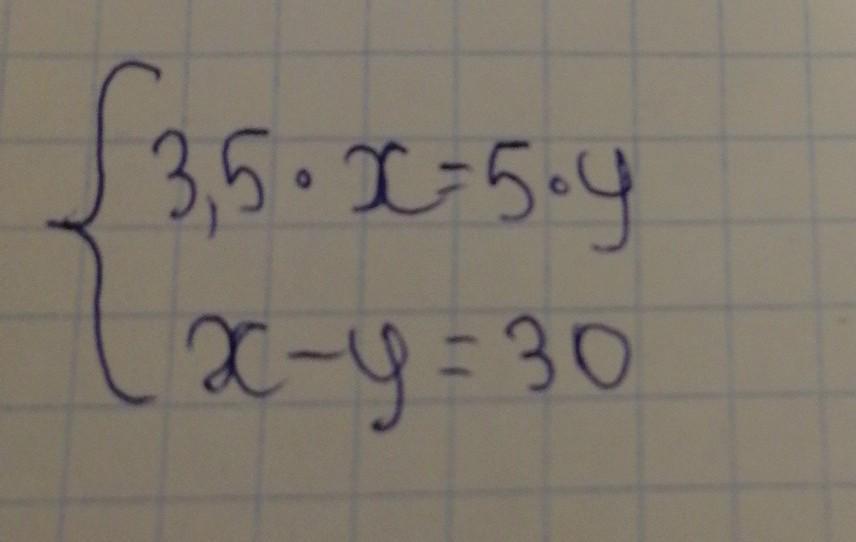 3,5 · x = 5 · y
x - y = 30